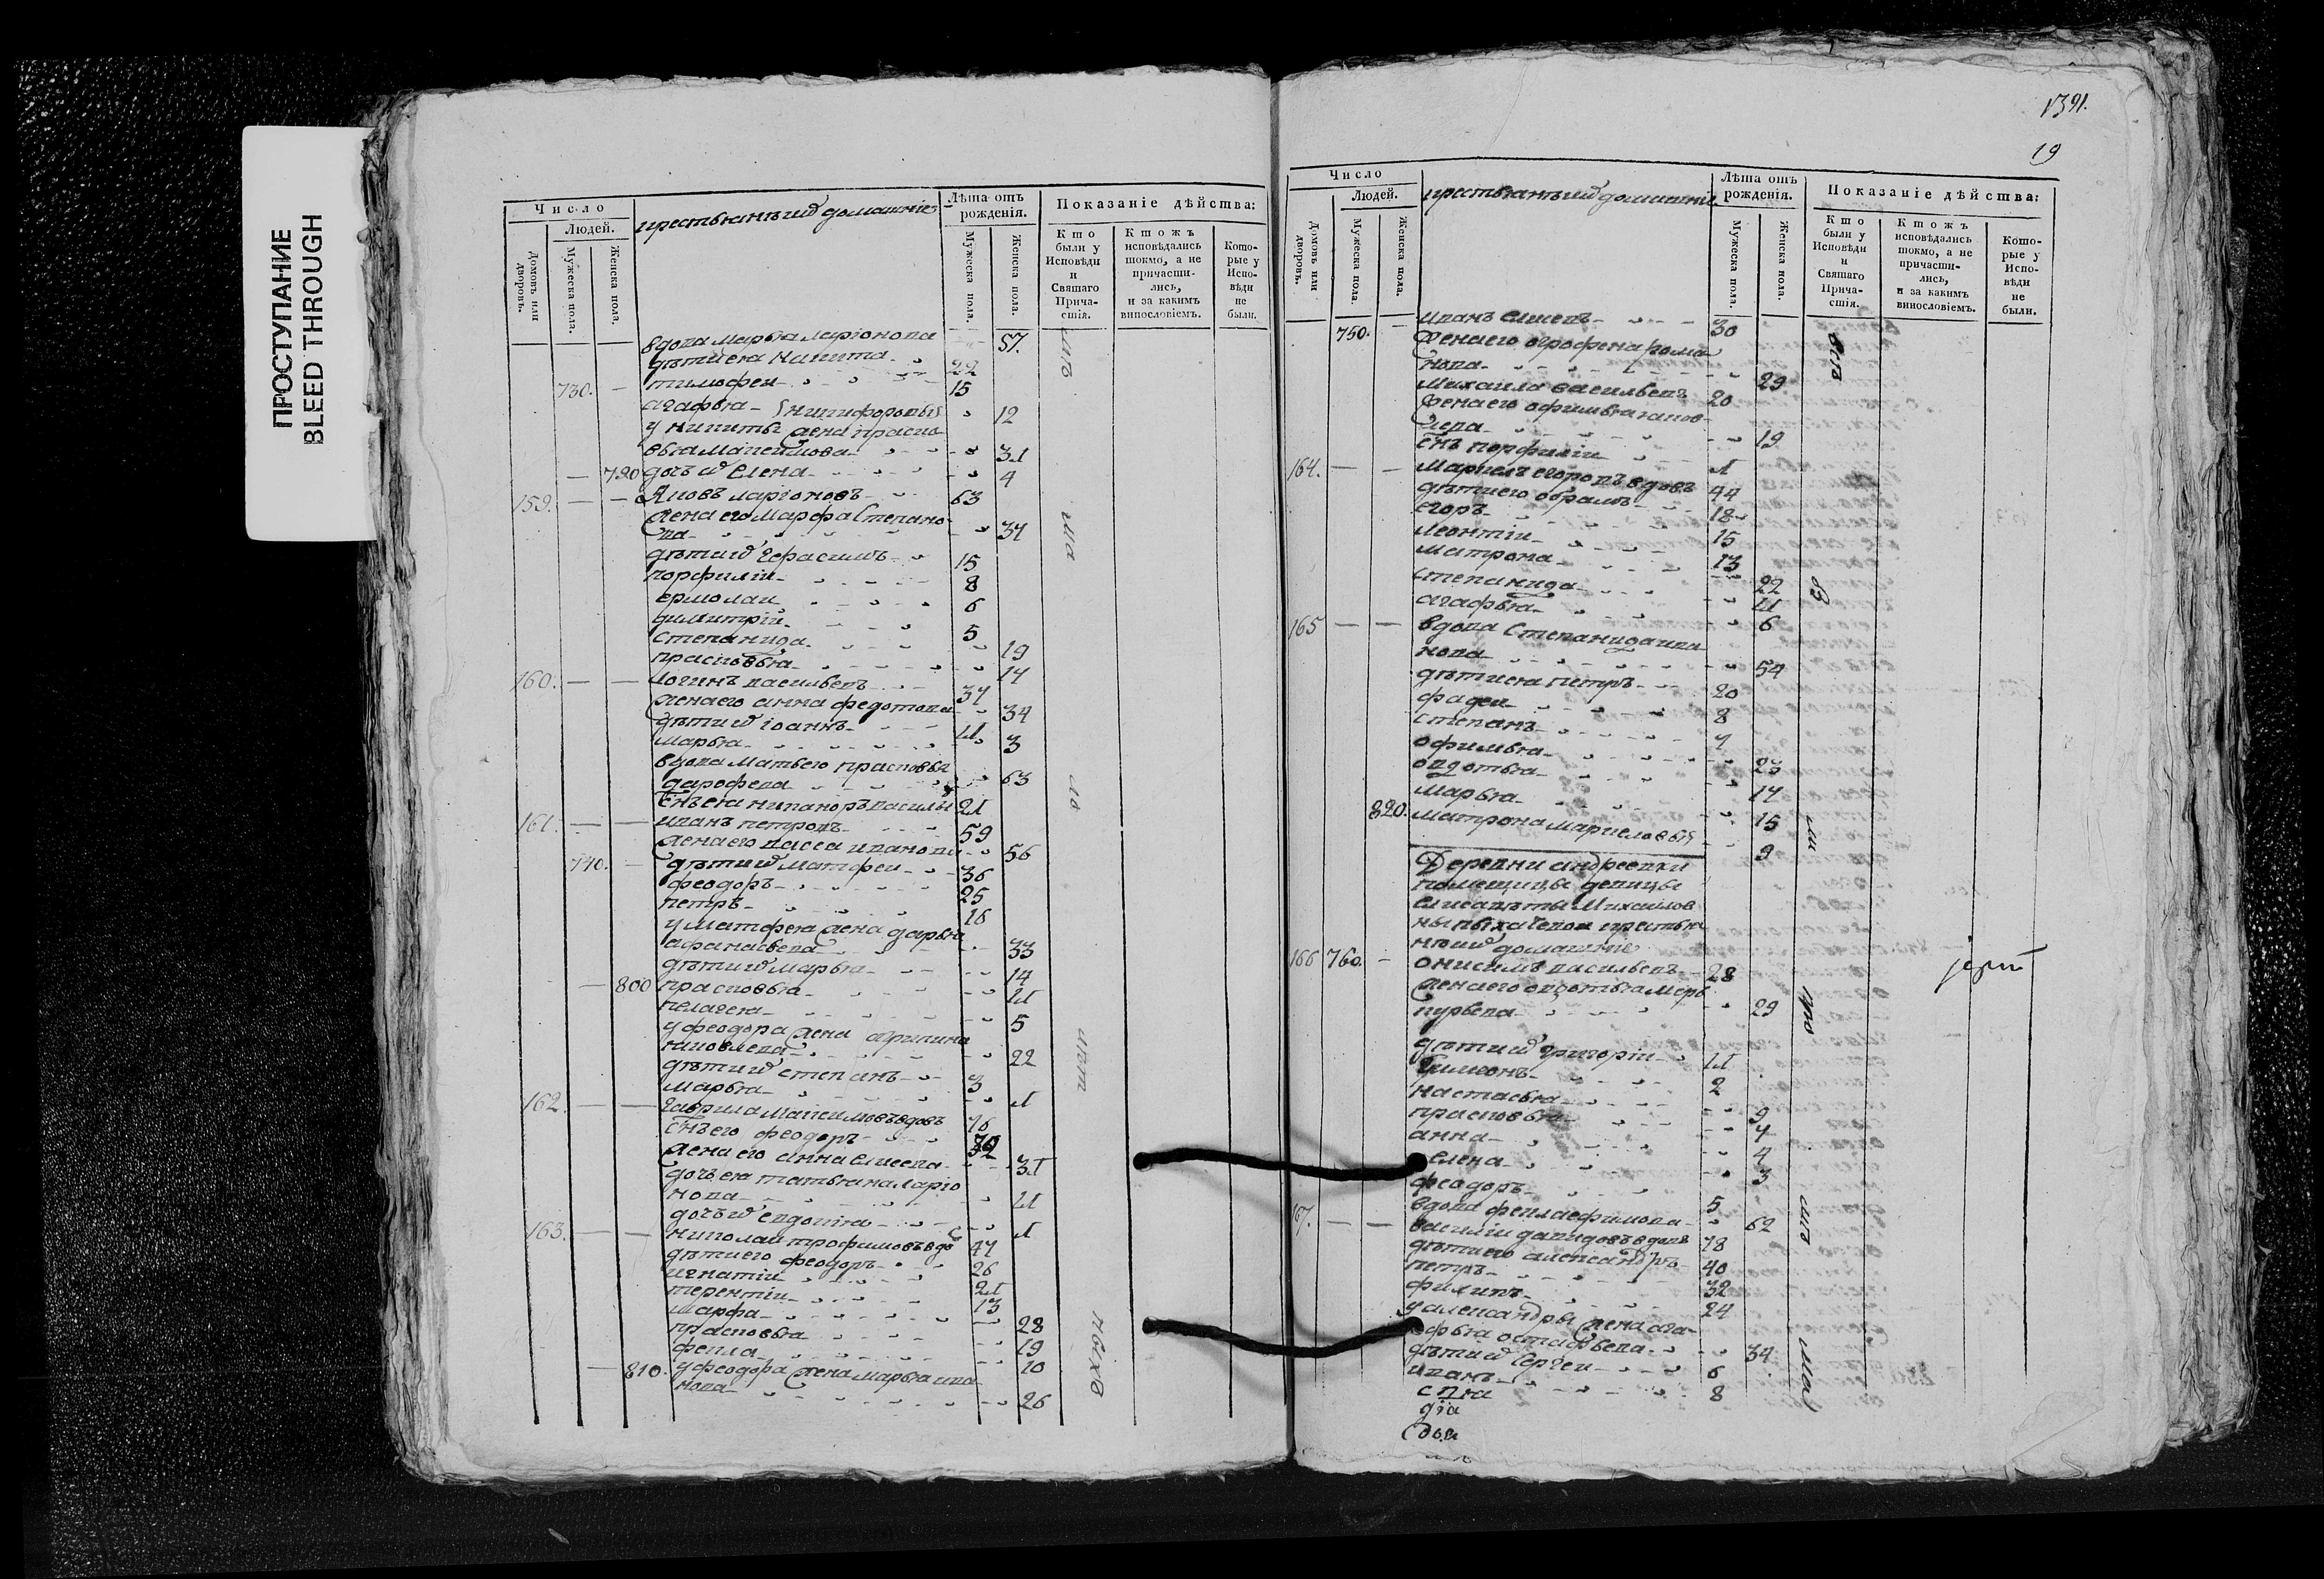 ПРОСТУПАНИЕ
BLEED THROUGH
Число
Людей.
Домовъ или дворовъ.
Мужеска пола.
Женска пола.
крестьянъ и ихъ домашніе
Лѣта отъ рожденія.
Мужеска пола.
Женска пола.
Показаніе дѣйства:
Кто были у Исповѣди и Святаго Причастія.
Ктожъ исповѣдались токмо, а не причастились, и за какимъ винословіемъ.
Которые у Исповѣди не были.
вдова Марья ларіонова 57.
дѣти ея Никита 22
730. тимофеи 15
агафья никифоровы 12
у никиты жена праско
вья
720 дочь их Елена 4
159. Яковъ ларіоновъ 63
жена его Марфа Степано
ва 34
дѣти их Герасимъ 15
порфиліи 8
ермолаи 6
димитріи 5
степанида 19
прасковья 14
160. Логинъ васильевъ 37
жена его анна федотова 34
дѣти их іоаннъ
марья 3
вдова мать его прасковья
дарофева 63
Снъ ея никаноръ васильв 21
161. иванъ петровъ 59
жена его васса иванова 56
740. дѣти их матфеи 36
феодоръ 25
петръ 16
у матфея жена дарья
афанасьева 33
дѣти их марья 14
800 прасковья
пелагея 5
у феодора жена акилина
яковлева 22
дѣти их степанъ 3
марья
162. гаврила вдовъ 76
Снъ его феодоръ
жена его анна елисеева 31
дочь ея татьяна ларіо
нова
дочь их евдокия
163. николаи трофимовъ вдо 47
дѣти его феодоръ 26
игнатіи 21
терентіи 13
марфа 28
прасковья 19
фекла 10
810. у феодора жена марья ива
нова 26
1391.
19
Число
Людей.
Домовъ или дворовъ.
Мужеска пола.
Женска пола.
крестьянъ и ихъ домашніе
Лѣта отъ рожденія.
Мужеска пола.
Женска пола.
Показаніе дѣйства:
Кто были у Исповѣди и Святаго Причастія.
Ктожъ исповѣдались токмо, а не причастились, и за какимъ винословіемъ.
Которые у Исповѣди не были.
иванъ Елисеевъ 30
750. жена его огрофена рома
нова 29
михаила васильевъ 20
жена его офимья яков
лева 19
снъ порфиліи
164. маркелъ егоровъ вдовъ 44
дѣти его обрамъ 18
егоръ 15
леонтіи 13
матрона 22
степанида
агафья 6
165 вдова Степанида ива
нова 54
дѣти ея петръ 20
фадеи 8
степанъ 7
офимья 23
овдотья 17
марья 15
820. матрона маркеловы 9
Деревни андреевки
помещицы девицы
Елисаветы Михаилов
ны крестья
не и их домашние
166 760. онисимъ васильевъ 28
жена его овдотья мерь
курьева 29
дѣти их григоріи
Симеонъ 2
настасья 9
прасковья 7
анна 4
елена 3
феодоръ 5
вдова фекла ефимова 62
167. василіи давидовъ вдовъ 78
дѣти его александръ 40
петръ 32
филипъ 24
у александры жена ага
фья остафьева 34
дѣти их Сергеи 6
иванъ 8